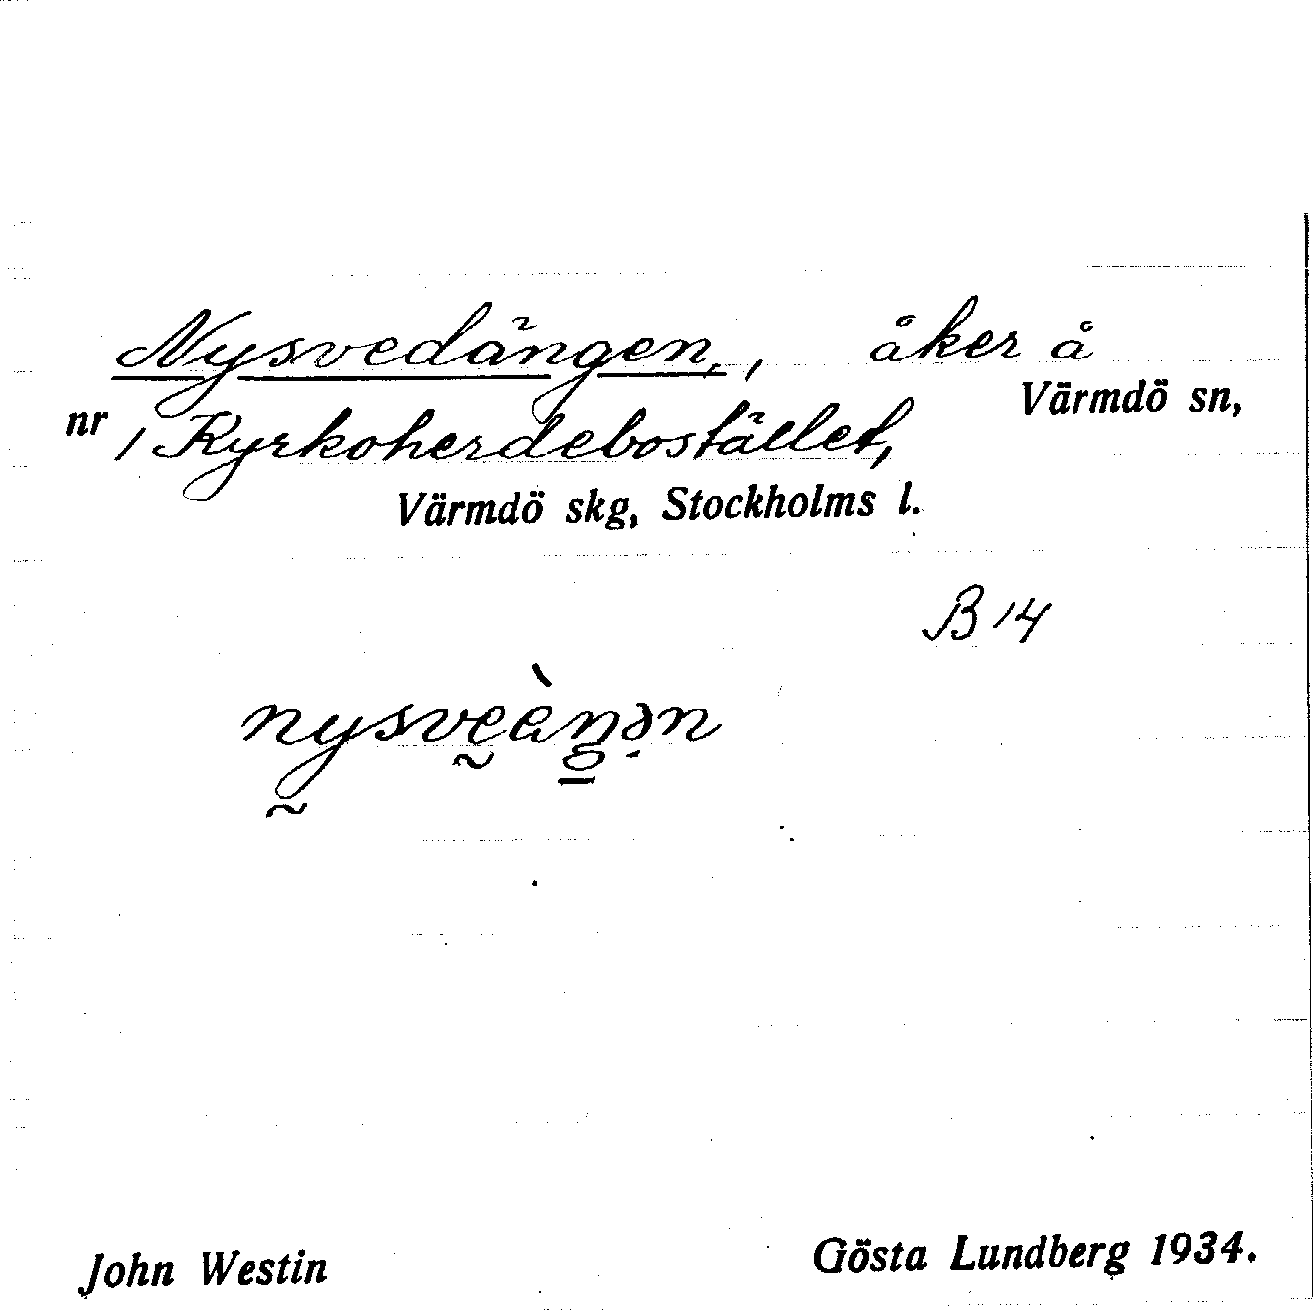 Nysvedängen, åker å
Värmdö sn,
nr 1 Kyrkoherdebostället,
Värmdö skg, Stockholms l.
B 14
nysveàŋən
John Westin
Gösta Lundberg 1934.